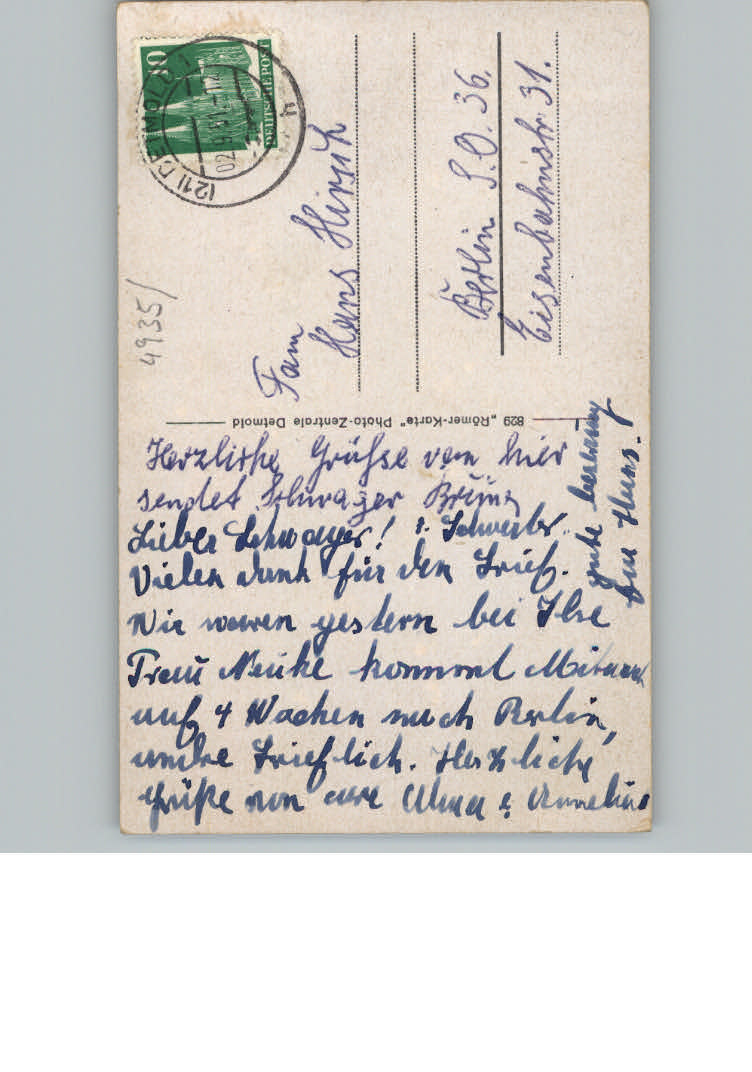 10
DEUTSCHE POST
(21) DETMOLD 1
h
4935/
Fam
Hans Hirsch
Berlin S.O. 36.
Eisenbahnstr. 31.
829 „Römer-Karte" Photo-Zentrale Detmold
Herzliche Grühse von hier
sendet Schwager Bruno
Lieber Schwager! u. Schwester.
Vielen dank für den Brief.
Wir waren gestern bei Ilse
Frau kommt
auf 4 Wochen nach Berlin,
andre brieflich. Herzliche
Grüße von eure Alma &
gute
Hans.